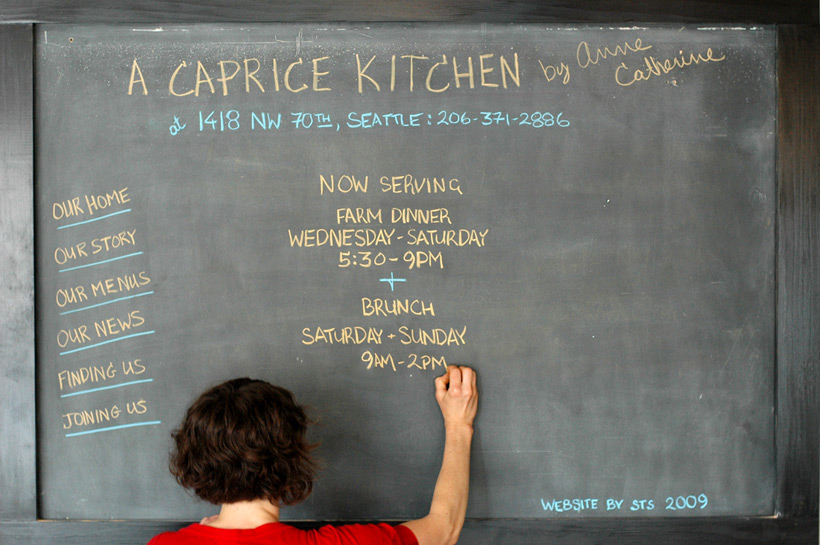 A CAPRICE KITCHEN by Anne Catherine
at 1418 NW 70TH, SEATTLE: 206-371-2886
OUR HOME
OUR STORY
OUR MENUS
OUR NEWS
FINDING US
JOINING US
NOW SERVING
FARM DINNER
WEDNESDAY-SATURDAY
5:30-9PM
+
BRUNCH
SATURDAY + SUNDAY
9AM-2PM
WEBSITE BY STS 2009